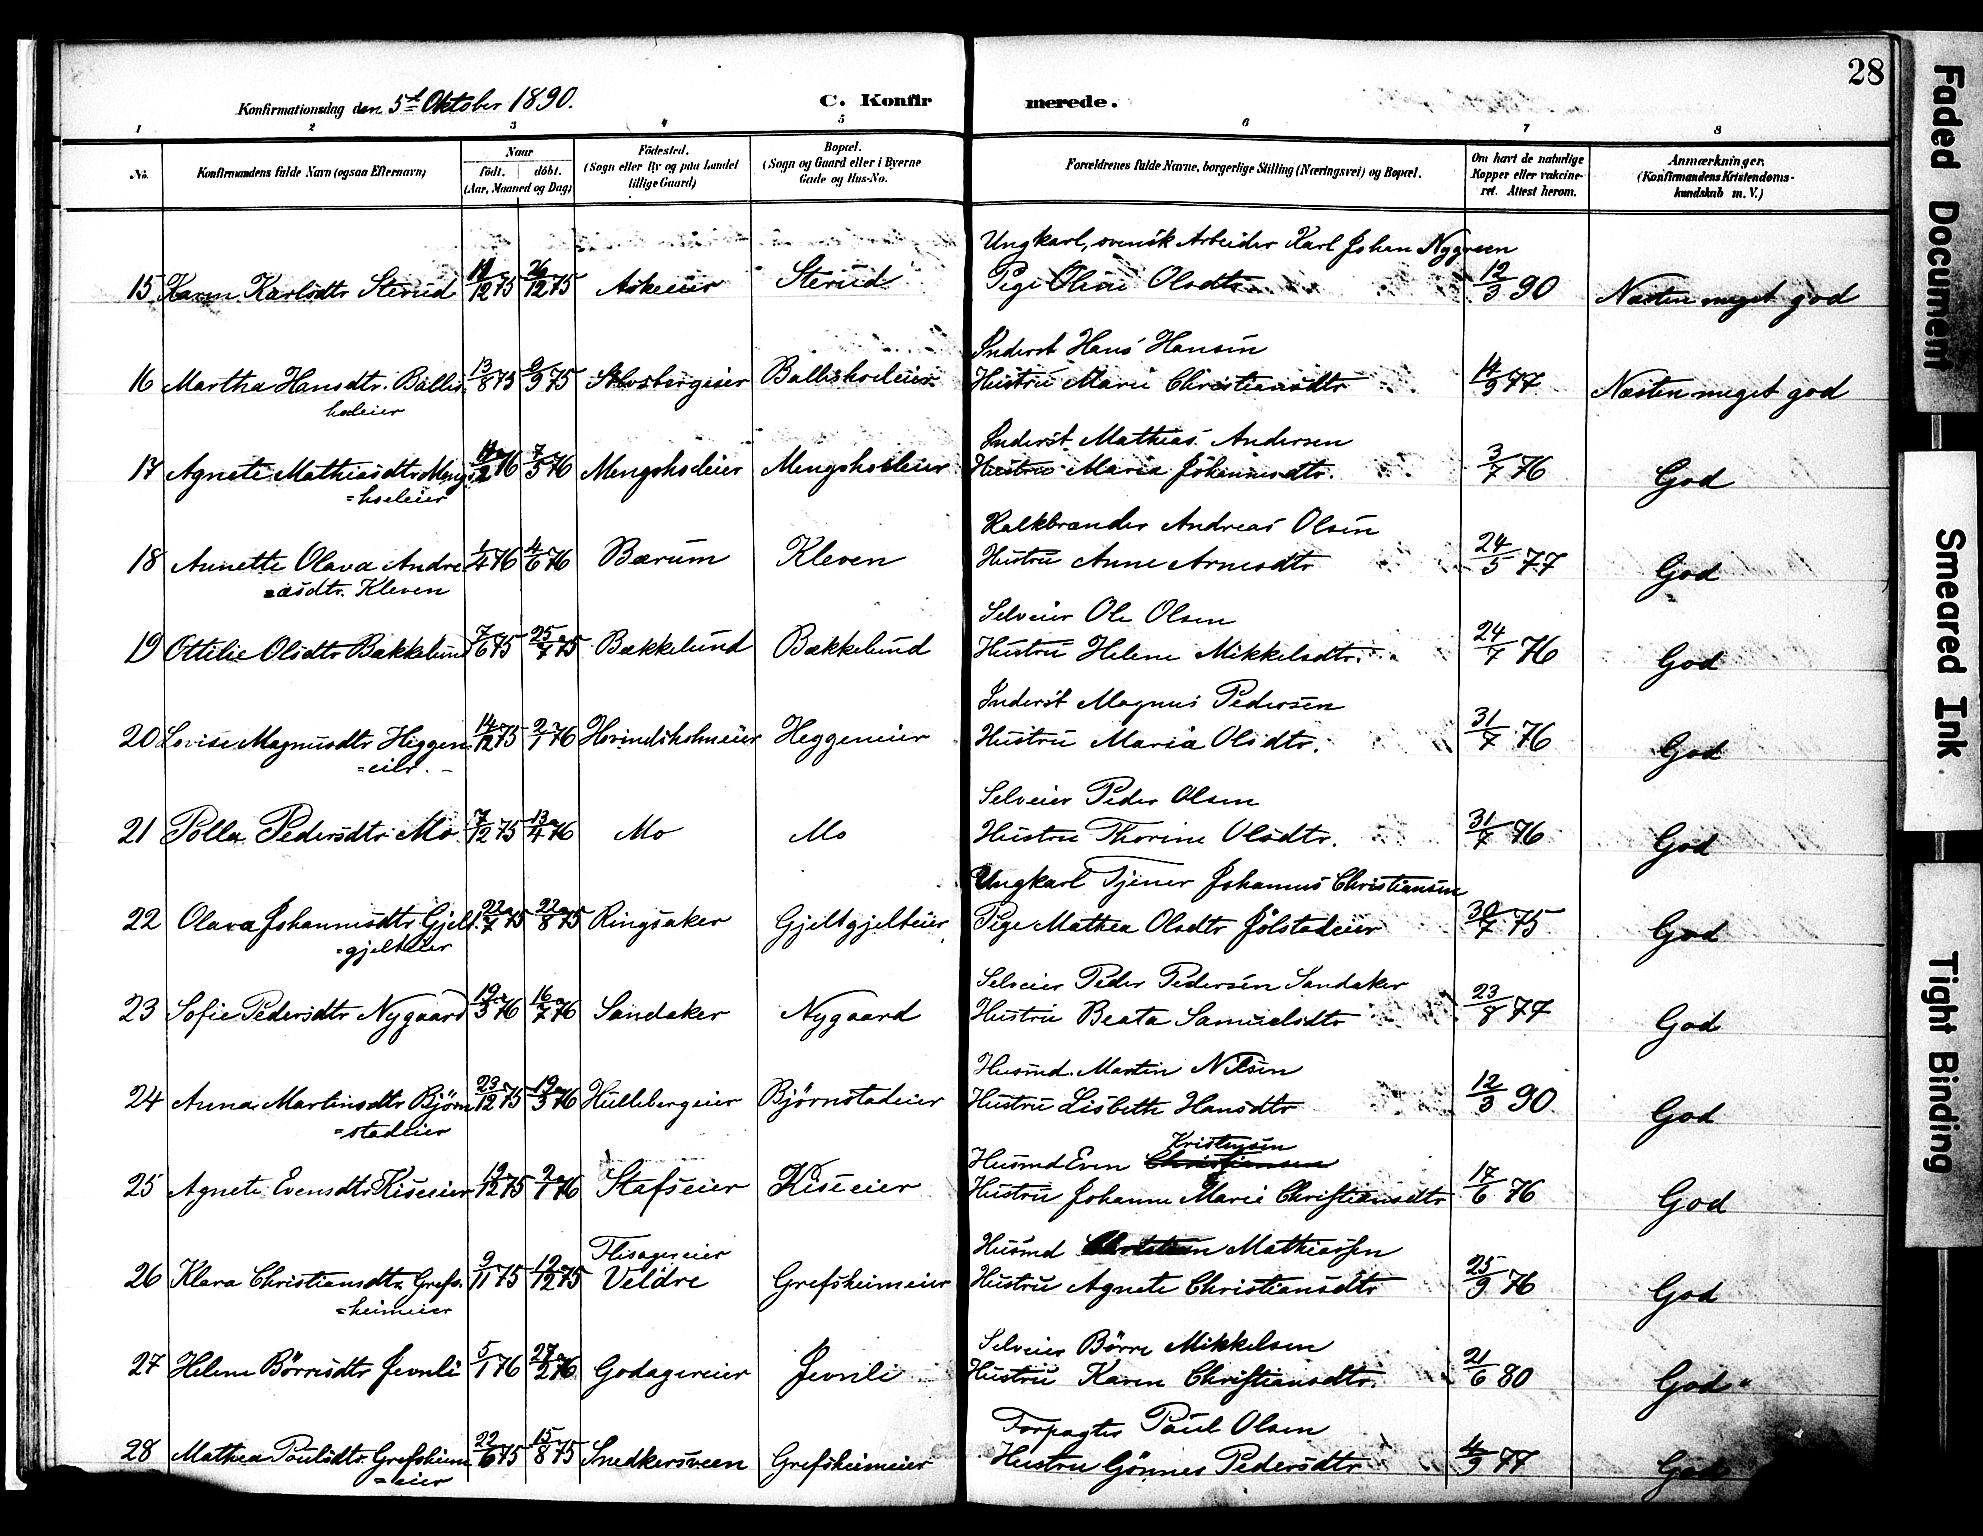 28
Konfirmationsdag den 5te Oktober 1890.
C. Konfir merede.
1 2 3 4 5 6 7 8
No.
Konfirmandens fulde Navn (ogsaa Efternavn)
Naar
födt. döbt.
(Aar, Maaned og Dag)
Födested.
(Sogn eller By og paa Landet
tillige Gaard)
Bopæl.
(Sogn og Gaard eller i Byerne
Gade og Hus-No.
Forældrenes fulde Navne, borgerlige Stilling (Næringsvei) og Bopæl.
Om havt de naturlige
Kopper eller vakcine-
ret. Attest herom.
Anmærkninger.
(Konfirmandens Kristendoms-
kundskab m. V.)
Ungkarl, svensk Arbeider Karl Johan Nygreen
15 Karen Karlsdtr Sterud 19/12 75 26/12 75 Askeeier Sterud Pige Oline Olsdtr 12/3 90 Næsten meget god
Inderst Hans Hansen
16 Martha Hansdtr. Ballis- 13/8 75 9/9 75 Stensbergeier Ballisholeier Hustru Marie Christiansdtr 14/9 77 Næsten meget god
holeier
Inderst Mathias Andersen
17 Agnete Mathiasdtr Mengs 7/5 76 Mengsholeier Mengsholeier Hustru Maria Johannesdtr. 3/7 76 God
=holeier
Kalkbrænder Andreas Olsen
18 Annette Olava Andre 1/4 76 4/6 76 Bærum Kleven Hustru Anne Arnesdtr 24/5 77 God
=asdtr. Kleven
Selveier Ole Olsen
19 Ottilie Olsdtr Bækkelund 7/6 75 25/7 75 Bækkelund Bækkelund Hustru Helene Mikkelsdtr. 24/7 76 God
Inderst Magnus Pedersen
20 Lovise Magnusdtr Heggen 14/12 75 2/1 76 Hovindsholmeier Heggeneier Hustru Maria Olsdtr. 31/7 76 God
=eier.
Selveier Peder Olsen
21 Polla Pedersdtr Mo 7/12 75 13/4 76 Mo Mo Hustru Thorine Olsdtr. 31/7 76 God
Ungkarl Tjener Johannes Christiansen
22 Olava Johannesdtr Gjelt. 22/7 75 22/8 75 Ringsaker Gjeltgjelteier Pige Mathea Olsdtr Jölstadeier 30/7 75 God
=gjelteier
Selveier Peder Pedersen Sandaker
23 Sofie Pedersdtr Nygaard 19/3 76 16/7 76 Sandaker Nygaard Hustru Beata Samuelsdtr 23/8 77 God
Husmd. Martin Nilsen
24 Anna Martinsdtr Björn 23/12 75 19/3 76 Hullebergeier Björnstadeier Hustru Lisbeth Hansdtr 12/3 90 God
=stadeier
Kristensen
Husmd Even Christiansen
25 Agnete Evensdtr Kiseeier 19/12 75 2/1 76 Stafseier Kiseeier Hustru Johanne Marie Christiansdtr 17/6 76 God
Flisagereier Husmd Christian Mathiassen
26 Klara Christiansdtr Grefs. 9/11 75 12/12 75 Veldre Grefsheimeier Hustru Agnete Christiansdtr 25/9 76 God
=heimeier
Selveier Börre Mikkelsen
27 Helene Börresdtr Jevnli 5/1 76 27/2 76 Godagereier Jevnli Hustru Karen Christiansdtr. 21/6 80 God
Forpagter Paul Olsen
28 Mathea Paulsdtr. Grefsheim 22/6 75 15/8 75 Snedkersveen Grefsheimeier Hustru Gönner Pedersdtr 4/9 77 God
=eier
Faded Document
Smeared Ink
Tight Binding